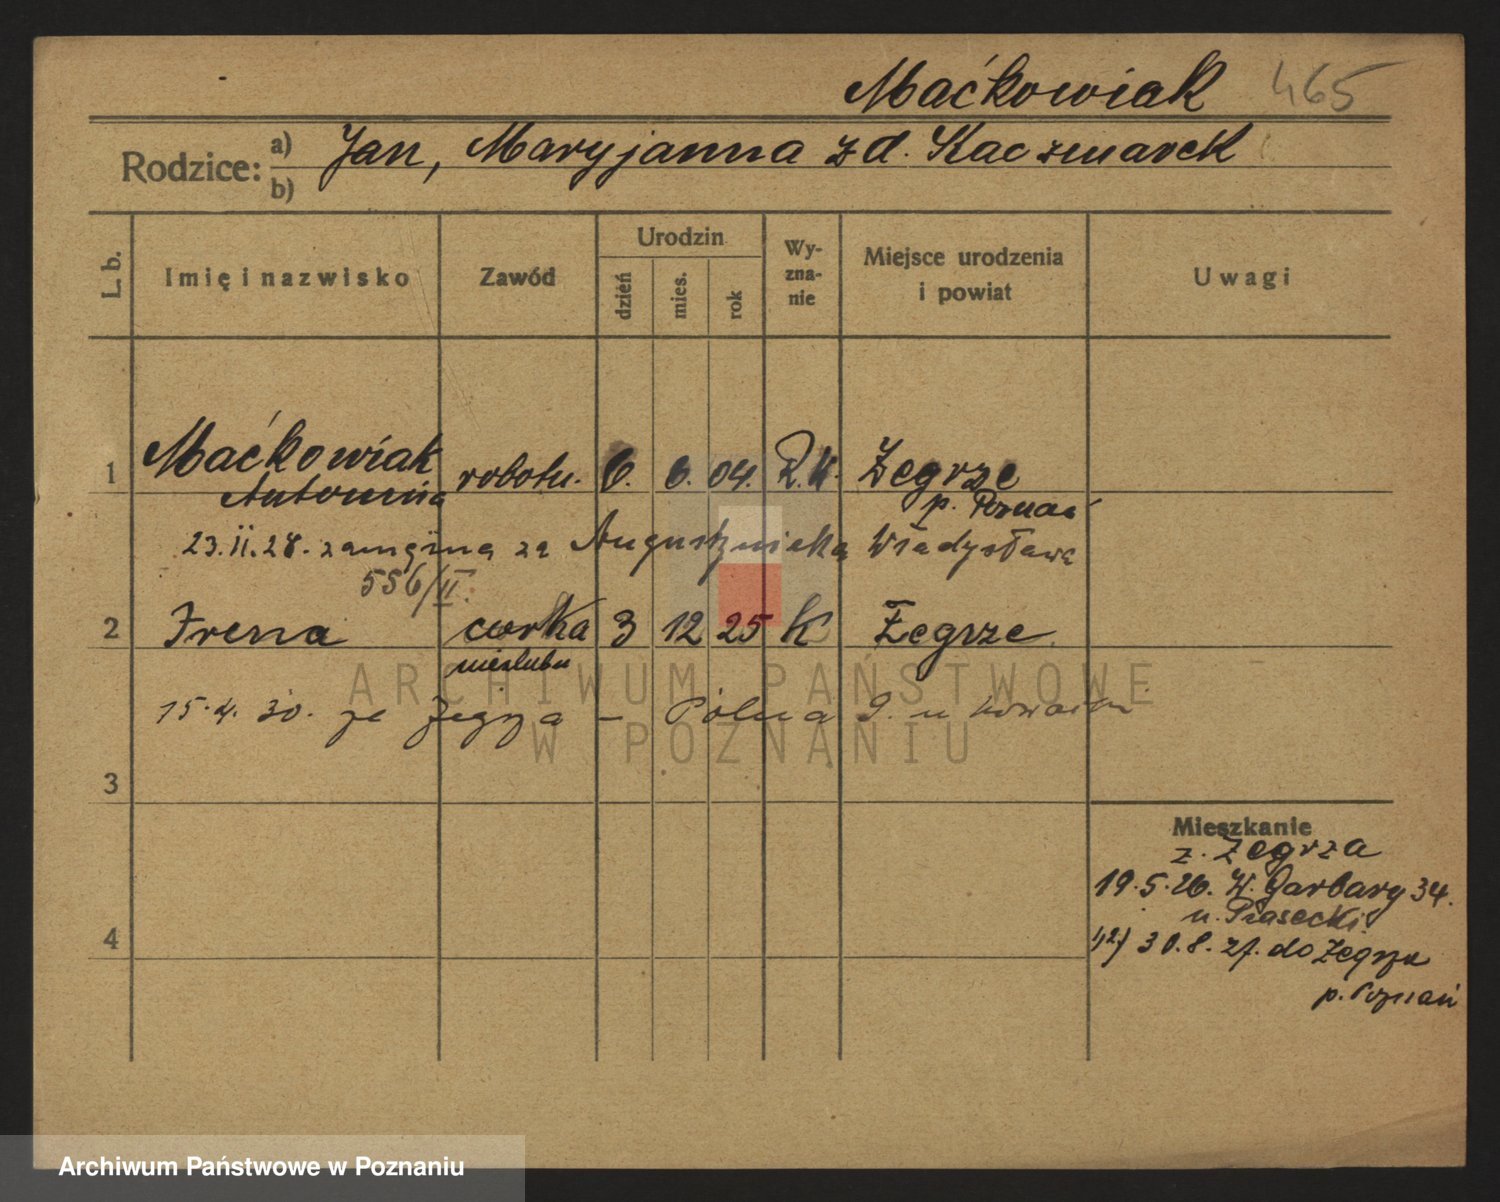 Maćkowiak 465
Rodzice: a) b) Jan, Maryjanna z d. Kaczmarek
L. b. Imię i nazwisko Zawód Urodzin dzień mies. rok Wy-zna-nie Miejsce urodzenia i powiat Uwagi
1 Maćkowiak robotn. 6. 6. 04. R.K. Zegrze
Antonina p. Poznań
23.II.28. zamężna za Augustyniaka Władysława
556/II.
2 Irena córka 3 12 25 K Zegrze
nieślubn
15.4.30. ze Zegrza – Polna 9. u
3
4
Mieszkanie
z. Zegrza
19.5.26. W. Garbary 34.
u. Piasecki
30.8.27. do Zegrza
p. Poznań
ARCHIWUM PAŃSTWOWE
W POZNANIU
Archiwum Państwowe w Poznaniu